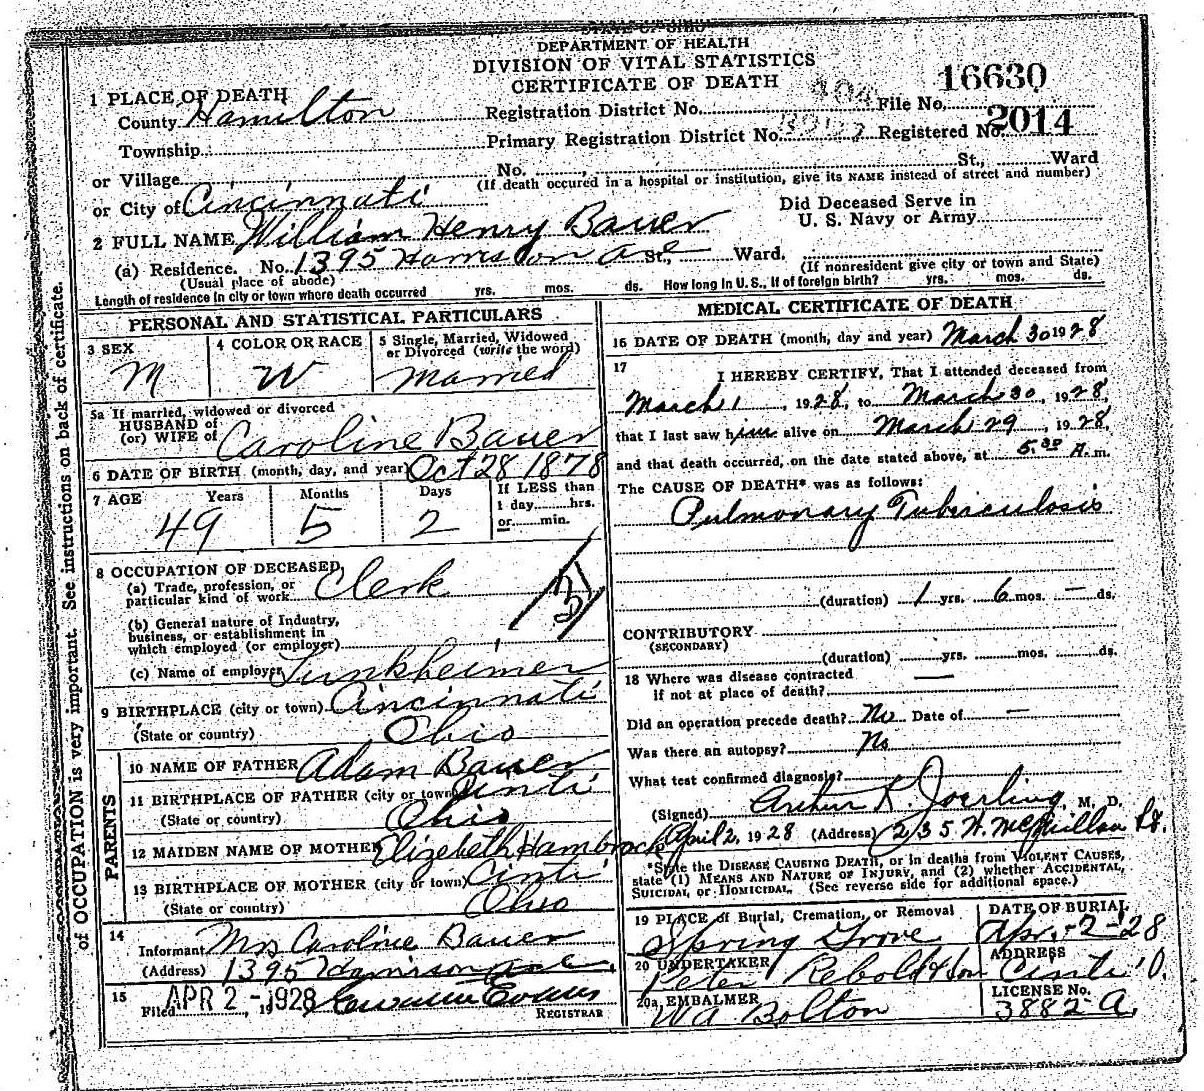 STATE OF OHIO
DEPARTMENT OF HEALTH
DIVISION OF VITAL STATISTICS
CERTIFICATE OF DEATH
1 PLACE OF DEATH
County Hamilton
Registration District No. File No. 16630
Township
Primary Registration District No. Registered No. 2014
or Village
No. St., Ward
(If death occured in a hospital or institution, give its NAME instead of street and number)
or City of Cincinnati
Did Deceased Serve in
U. S. Navy or Army
2 FULL NAME William Henry Bauer
(a) Residence. No. 1395 Harrison Ave St., Ward.
(Usual place of abode) (If nonresident give city or town and State)
Length of residence in city or town where death occurred yrs. mos. ds. How long in U. S., if of foreign birth? yrs. mos. ds.
PERSONAL AND STATISTICAL PARTICULARS
3 SEX M
4 COLOR OR RACE W
5 Single, Married, Widowed
or Divorced (write the word)
Married
5a If married, widowed or divorced
HUSBAND of
(or) WIFE of Caroline Bauer
6 DATE OF BIRTH (month, day, and year) Oct 28 1878
7 AGE Years Months Days If LESS than
1 day hrs.
or min.
49 5 2
8 OCCUPATION OF DECEASED
(a) Trade, profession, or
particular kind of work Clerk
(b) General nature of Industry,
business, or establishment in
which employed (or employer)
(c) Name of employer Lunkheimer
9 BIRTHPLACE (city or town) Cincinnati
(State or country) Ohio
PARENTS
10 NAME OF FATHER Adam Bauer
11 BIRTHPLACE OF FATHER (city or town) Cinti
(State or country) Ohio
12 MAIDEN NAME OF MOTHER Elizabeth Hambrock
13 BIRTHPLACE OF MOTHER (city or town) Cinti
(State or country) Ohio
14
Informant Mrs Caroline Bauer
(Address) 1395 Harrison Ave.
15
Filed APR 2 - 1928
REGISTRAR
MEDICAL CERTIFICATE OF DEATH
16 DATE OF DEATH (month, day and year) March 30 1928
17
I HEREBY CERTIFY, That I attended deceased from
March 1, 1928, to March 30, 1928,
that I last saw him alive on March 29, 1928,
and that death occurred, on the date stated above, at 5.30 A. m.
The CAUSE OF DEATH* was as follows:
Pulmonary Tuberculosis
(duration) 1 yrs. 6 mos. — ds.
CONTRIBUTORY
(SECONDARY)
(duration) yrs. mos. ds.
18 Where was disease contracted
if not at place of death? —
Did an operation precede death? No Date of —
Was there an autopsy? No
What test confirmed diagnosis?
(Signed) Arthur R. Joerling, M. D.
April 2, 1928 (Address) 235 W. McMillan St.
*State the DISEASE CAUSING DEATH, or in deaths from VIOLENT CAUSES,
state (1) MEANS AND NATURE OF INJURY, and (2) whether ACCIDENTAL,
SUICIDAL, or HOMICIDAL. (See reverse side for additional space.)
19 PLACE of Burial, Cremation, or Removal
Spring Grove
DATE OF BURIAL
Apr. - 2 - '28
20 UNDERTAKER
Peter Rebold & Son
ADDRESS
Cinti O.
20a EMBALMER
W A Bolton
LICENSE No.
3882-A
of OCCUPATION is very important. See instructions on back of certificate.